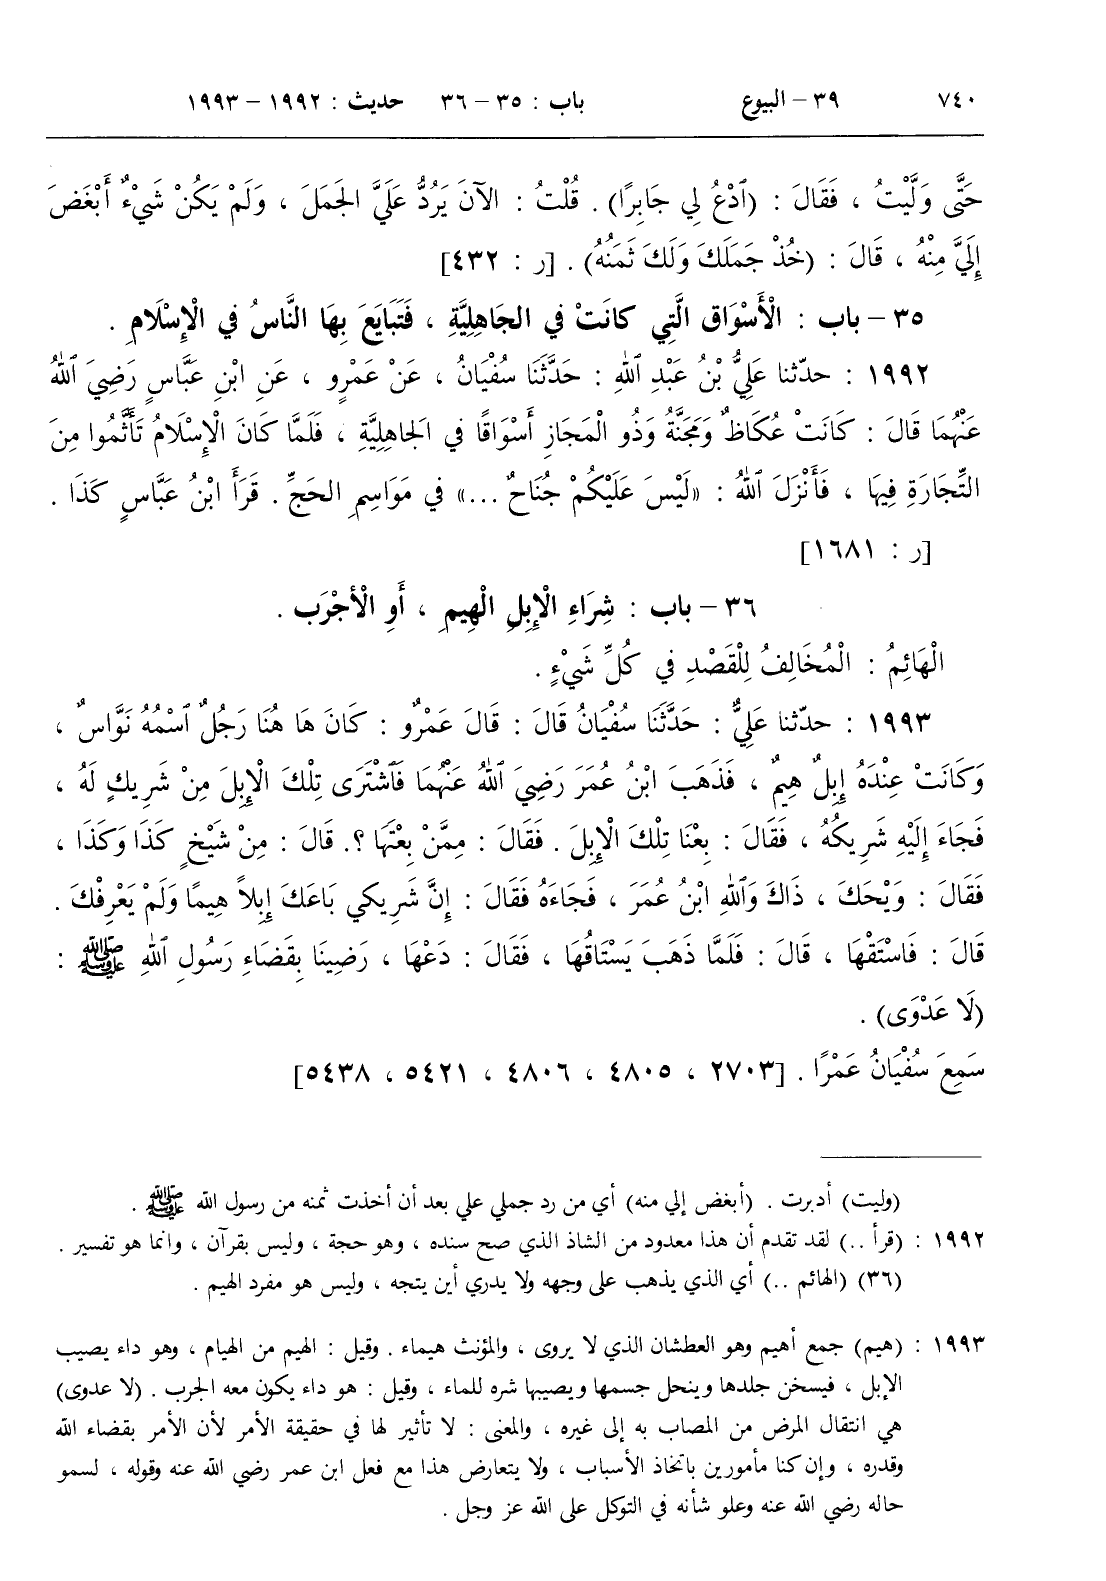 ٧٤٠ ٣٩ – البيوع باب : ٣٥ – ٣٦ حديث : ١٩٩٢ – ١٩٩٣
حَتَّى وَلَّيْتُ ، فَقَالَ : (ٱدْعُ لِي جَابِرًا) . قُلْتُ : الآنَ يَرُدُّ عَلَيَّ الجَمَلَ ، وَلَمْ يَكُنْ شَيْءٌ أَبْغَضَ
إِلَيَّ مِنْهُ ، قَالَ : (خُذْ جَمَلَكَ وَلَكَ ثَمَنُهُ) . [ر : ٤٣٢]
٣٥ – باب : الْأَسْوَاقِ الَّتِي كانَتْ في الجَاهِلِيَّةِ ، فَتَبَايَعَ بِهَا النَّاسُ في الْإِسْلَامِ .
١٩٩٢ : حدّثنا عَلِيُّ بْنُ عَبْدِ ٱللهِ : حَدَّثَنَا سُفْيَانُ ، عَنْ عَمْرٍو ، عَنِ ابْنِ عَبَّاسٍ رَضِيَ ٱللهُ
عَنْهُمَا قَالَ : كَانَتْ عُكَاظٌ وَمَجَنَّةُ وَذُو الْمَجَازِ أَسْوَاقًا في الجَاهِلِيَّةِ ، فَلَمَّا كانَ الْإِسْلَامُ تَأَثَّمُوا مِنَ
التِّجَارَةِ فِيهَا ، فَأَنْزَلَ ٱللهُ : «لَيْسَ عَلَيْكُمْ جُنَاحٌ ...» في مَوَاسِمِ الحَجِّ . قَرَأَ ابْنُ عَبَّاسٍ كَذَا .
[ر : ١٦٨١]
٣٦ – باب : شِرَاءِ الْإِبِلِ الْهِيمِ ، أَوِ الْأَجْرَبِ .
الْهَائِمُ : الْمُخَالِفُ لِلْقَصْدِ في كُلِّ شَيْءٍ .
١٩٩٣ : حدّثنا عَلِيٌّ : حَدَّثَنَا سُفْيَانُ قَالَ : قَالَ عَمْرٌو : كَانَ هَا هُنَا رَجُلٌ ٱسْمُهُ نَوَّاسٌ ،
وَكَانَتْ عِنْدَهُ إِبِلٌ هِيمٌ ، فَذَهَبَ ابْنُ عُمَرَ رَضِيَ ٱللهُ عَنْهُمَا فَٱشْتَرَى تِلْكَ الْإِبِلَ مِنْ شَرِيكٍ لَهُ ،
فَجَاءَ إِلَيْهِ شَرِيكُهُ ، فَقَالَ : بِعْنَا تِلْكَ الْإِبِلَ . فَقَالَ : مِمَّنْ بِعْتَهَا ؟. قَالَ : مِنْ شَيْخٍ كَذَا وَكَذَا ،
فَقَالَ : وَيْحَكَ ، ذَاكَ وَٱللهِ ابْنُ عُمَرَ ، فَجَاءَهُ فَقَالَ : إِنَّ شَرِيكي بَاعَكَ إِبِلاً هِيمًا وَلَمْ يَعْرِفْكَ .
قَالَ : فَاسْتَقْهَا ، قَالَ : فَلَمَّا ذَهَبَ يَسْتَاقُهَا ، فَقَالَ : دَعْهَا ، رَضِينَا بِقَضَاءِ رَسُولِ ٱللهِ ﷺ :
(لَا عَدْوَى) .
سَمِعَ سُفْيَانُ عَمْرًا . [٢٧٠٣ ، ٤٨٠٥ ، ٤٨٠٦ ، ٥٤٢١ ، ٥٤٣٨]
(وليت) أدبرت . (أبغض إلي منه) أي من رد جملي علي بعد أن أخذت ثمنه من رسول الله ﷺ .
١٩٩٢ : (قرأ ..) لقد تقدم أن هذا معدود من الشاذ الذي صح سنده ، وهو حجة ، وليس بقرآن ، وانما هو تفسير .
(٣٦) (الهائم ..) أي الذي يذهب على وجهه ولا يدري أين يتجه ، وليس هو مفرد الهيم .
١٩٩٣ : (هيم) جمع أهيم وهو العطشان الذي لا يروى ، والمؤنث هيماء . وقيل : الهيم من الهيام ، وهو داء يصيب
الإبل ، فيسخن جلدها وينحل جسمها ويصيبها شره للماء ، وقيل : هو داء يكون معه الجرب . (لا عدوى)
هي انتقال المرض من المصاب به إلى غيره ، والمعنى : لا تأثير لها في حقيقة الأمر لأن الأمر بقضاء الله
وقدره ، وإن كنا مأمورين باتخاذ الأسباب ، ولا يتعارض هذا مع فعل ابن عمر رضي الله عنه وقوله ، لسمو
حاله رضي الله عنه وعلو شأنه في التوكل على الله عز وجل .